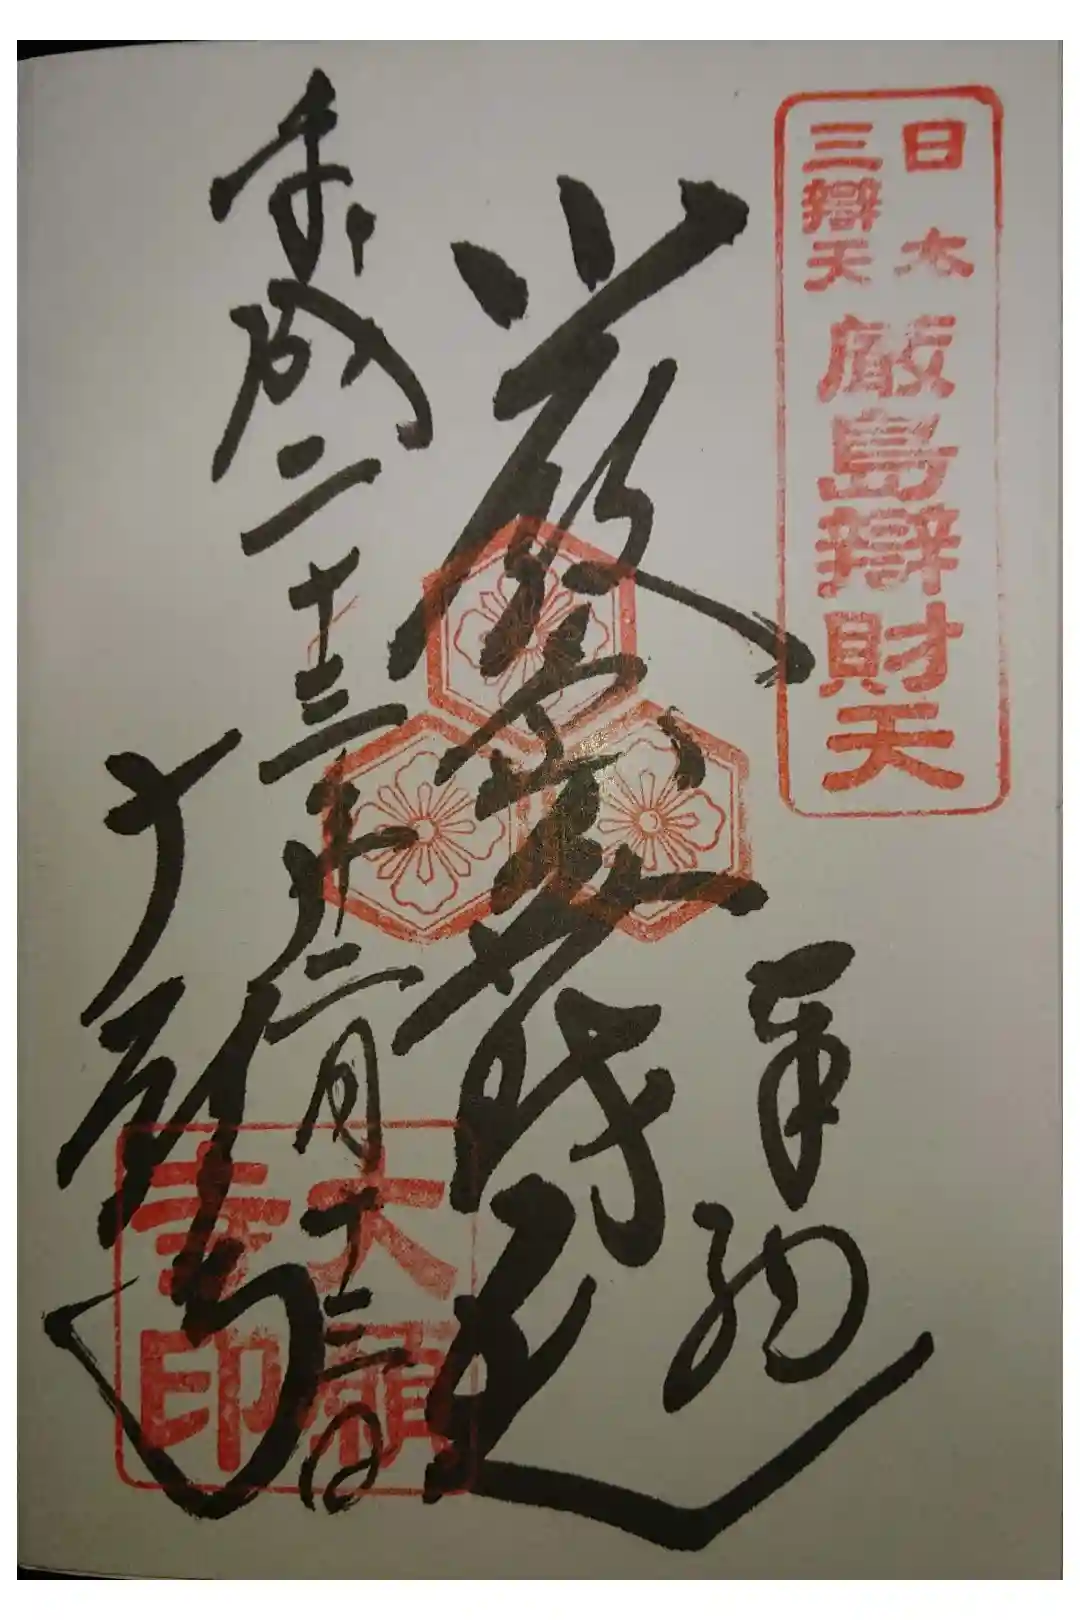 日本
三辯天
厳島辯財天
奉納
平成二十三年二月十三日
大願寺
大願
寺印